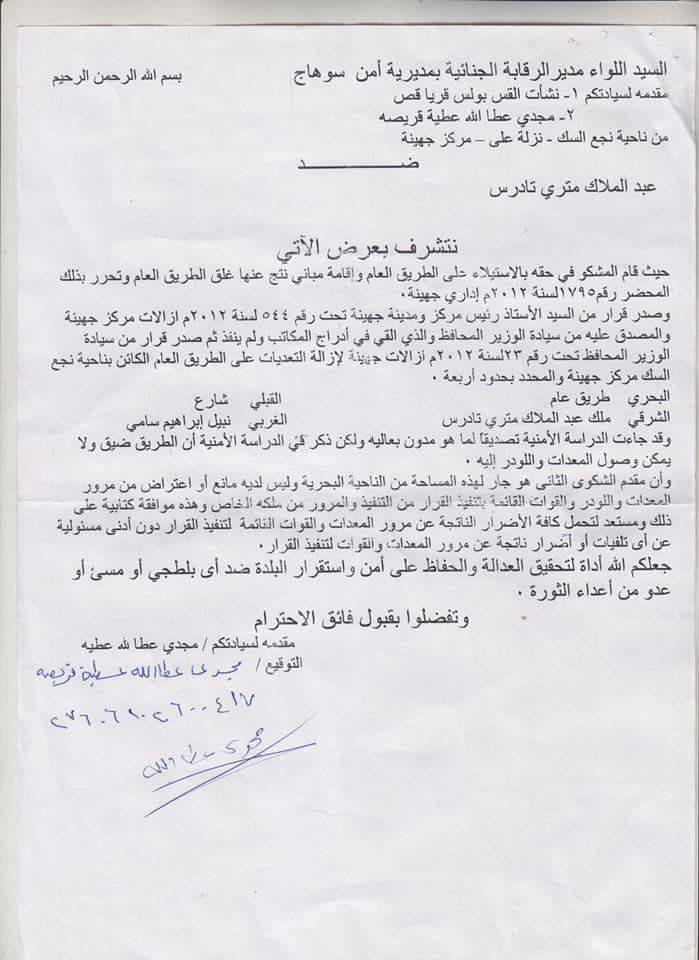 السيد اللواء مدير الرقابة الجنائية بمديرية أمن سوهاج
بسم الله الرحمن الرحيم
مقدمه لسيادتكم ١- نشأت القس بولس قريا قص
٢- مجدي عطا الله عطية قريصه
من ناحية نجع السك - نزلة على – مركز جهينة
ضــــــــــــــد
عبد الملاك متري تادرس
نتشرف بعرض الآتي
حيث قام المشكو في حقه بالاستيلاء على الطريق العام وإقامة مباني نتج عنها غلق الطريق العام وتحرر بذلك
المحضر رقم ١٧٩٥ لسنة ٢٠١٢م إداري جهينة.
وصدر قرار من السيد الأستاذ رئيس مركز ومدينة جهينة تحت رقم ٥٤٤ لسنة ٢٠١٢م ازالات مركز جهينة
والمصدق عليه من سيادة الوزير المحافظ والذي القي في أدراج المكاتب ولم ينفذ ثم صدر قرار من سيادة
الوزير المحافظ تحت رقم ٢٣ لسنة ٢٠١٢م ازالات جهينة لإزالة التعديات على الطريق العام الكائن بناحية نجع
السك مركز جهينة والمحدد بحدود أربعة .
البحري طريق عام القبلي شارع
الشرقي ملك عبد الملاك متري تادرس الغربي نبيل إبراهيم سامي
وقد جاءت الدراسة الأمنية تصديقا لما هو مدون بعاليه ولكن ذكر في الدراسة الأمنية أن الطريق ضيق ولا
يمكن وصول المعدات واللودر إليه .
وأن مقدم الشكوى الثانى هو جار لهذه المساحة من الناحية البحرية وليس لديه مانع أو اعتراض من مرور
المعدات واللودر والقوات القائمة بتنفيذ القرار من التنفيذ والمرور من ملكه الخاص وهذه موافقة كتابية على
ذلك ومستعد لتحمل كافة الأضرار الناتجة عن مرور المعدات والقوات القائمة لتنفيذ القرار دون أدنى مسئولية
عن أى تلفيات أو أضرار ناتجة عن مرور المعدات والقوات لتنفيذ القرار.
جعلكم الله أداة لتحقيق العدالة والحفاظ على أمن واستقرار البلدة ضد أى بلطجي أو مسئ أو
عدو من أعداء الثورة .
وتفضلوا بقبول فائق الاحترام
مقدمه لسيادتكم / مجدي عطا لله عطيه
التوقيع / مجدى عطا الله عطية قريصه
٢٧٦٠٦٩٠٢٦٠٠٤١٧
مجدى عطا الله